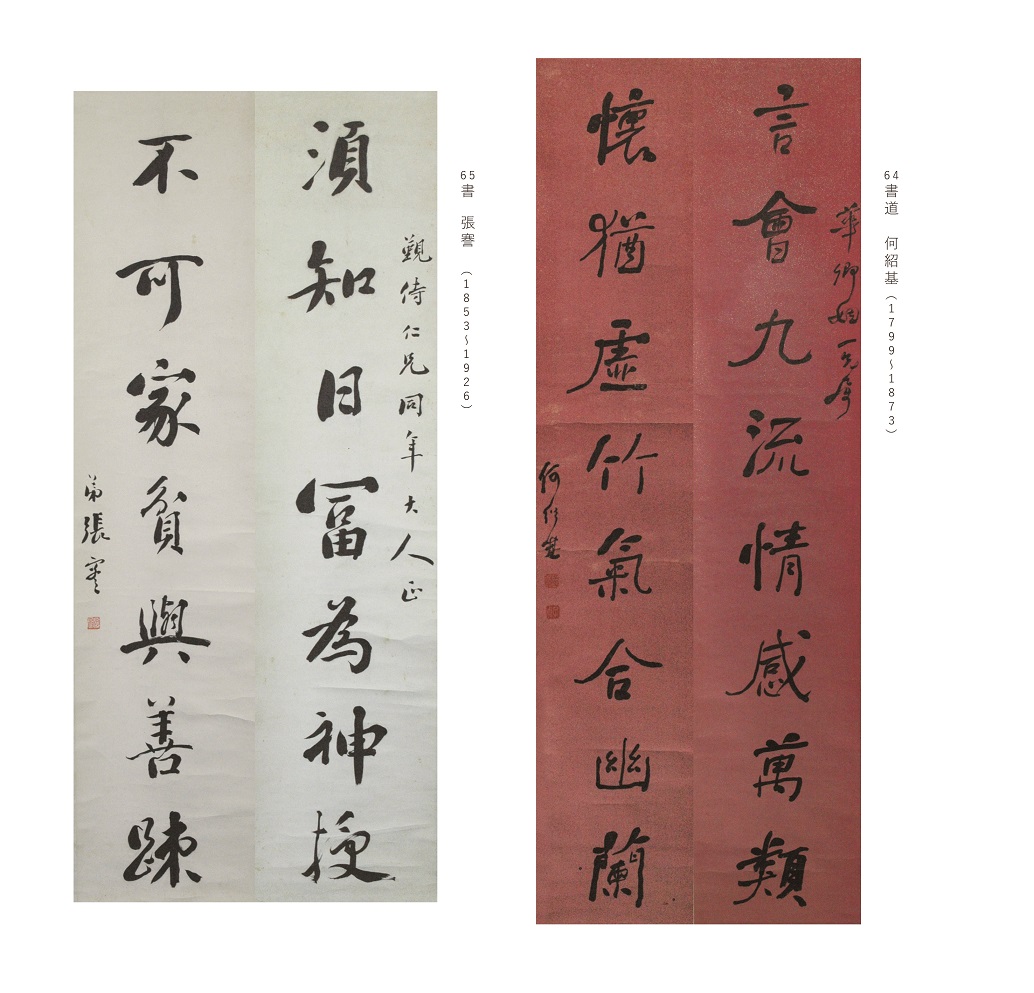 64書道 何紹基（1799〜1873）
華卿姻一兄屬
言會九流情感萬類
懷猶虛竹氣合幽蘭
何紹基
65書 張謇（1853〜1926）
觐侍仁兄同年大人正
須知日富為神授
不可家貧與善疎
弟張謇